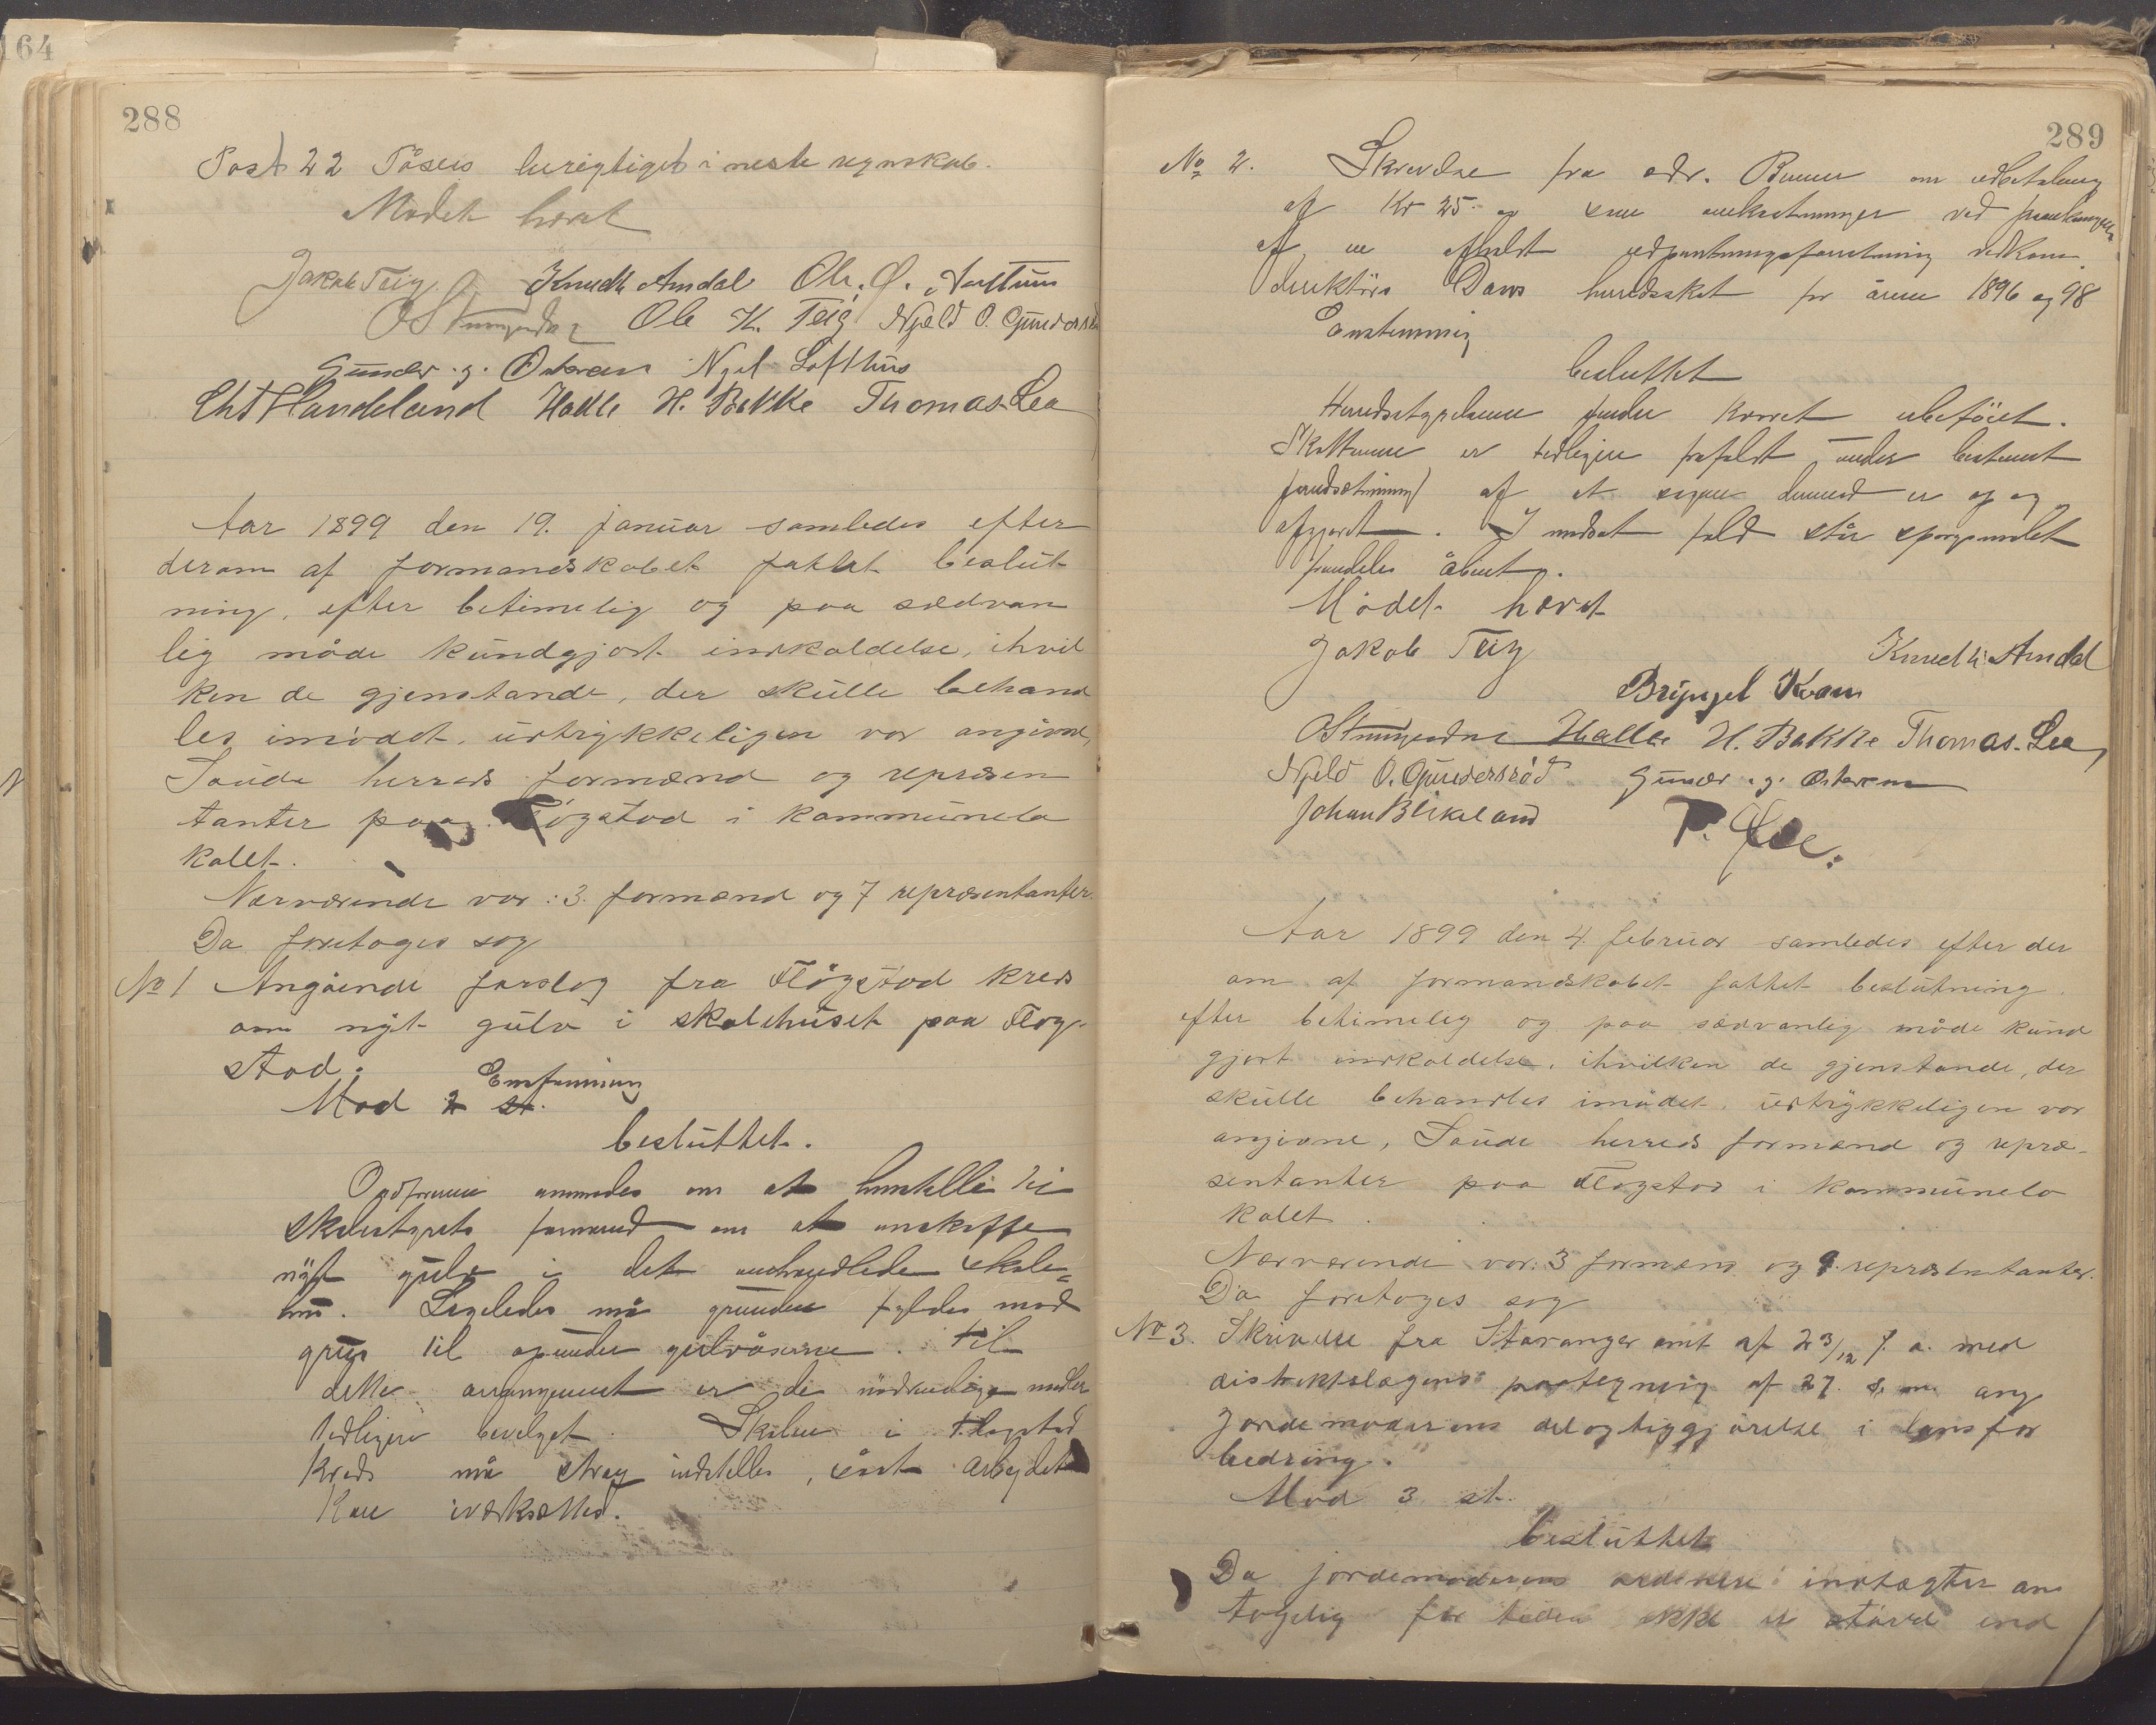 164
288
Post 22 Påsees berigtiget i neste regnskab.
Mødet hævet
Jakob Teig Knudt Amdal Chr. O. Nærtun
OStungendal Ole K. Teig Njæld O. Gundersrød
Gunder . g. Østerem Njel Lofthus
Cht Handeland Halle H. Bakke Thomas. Lea
Aar 1899 den 19. januar samledes efter
derom af formandskabet fattet beslut-
ning, efter betimelig og paa sædvan
lig måde kundgjort indkaldelse, ihvil
ken de gjenstande, der skulle behand
les imødet, udtrykkeligen var angivne,
Saude herreds formænd og repræsen
tanter paa Fløgstad i kommunelo
kalet.
Nærværende var: 3 formænd og 7 repræsentanter.
Da foretoges sag
No 1 Angående forslag fra Fløgstad kreds
om nyt gulv i skolehuset paa Fløg-
stad.
Mod 2 st. Enstemmig
besluttet.
Ordføreren anmodes om at henstille til
skolestyrets formand om at anskaffe
nyt gulv i det omhandlede skole=
hus. Ligeledes må grunden fyldes med
grus til opunder gulvåserne. Til
dette arrangement er de nødvendige midler
tidligere bevilget. Skolen i Fløgstad
kreds må strax indstilles, såat arbeidet
kan iværksættes.
289
No 2. Skrivelse fra adv. Bume om udbetaling
af Kr 25. og som omkostninger ved
af en afholdt udpantningsforretning vedkom.
direktørs Daws herredsskat for årene 1896 og 98
Enstemmig
besluttet
Herredsstyrelsen finder kravet ubeføiet.
Skatterne er tidligere frafaldt under bestemt
forudsætning af at sagen dermed er op og
afgjort. I modsat fald står spørgsmålet
fremdeles åbent.
Mødet hævet
Jakob Teig Knud K. Amdal
Bryngel Kvam
OStungendal Halle H. Bakke Thomas. Lea
Njeld O. Gundersrød Gunder . g. Østerem
Johan Blikeland P. Øie.
Aar 1899 den 4. februar samledes efter der
om af formandskabet fattet beslutning
efter betimelig og paa sædvanlig måde kund
gjort indkaldelse, ihvilken de gjenstande, der
skulle behandles imødet, udtrykkeligen var
angivne, Saude herreds formænd og repræ-
sentanter paa Fløgstad i kommunelo
kalet.
Nærværende var: 3 formænd og 9 repræsentanter.
Da foretoges sag
No 3. Skrivelse fra Stavanger amt af 23/12 f. a. med
distriktslægens paategning af 27. s. m. ang
jordemoderens delagtiggjørelse i lønsfor
bedring.
Mod 3 st.
besluttet
Da jordemoderens ordinære indtægter an
tagelig for tiden ikke er større end